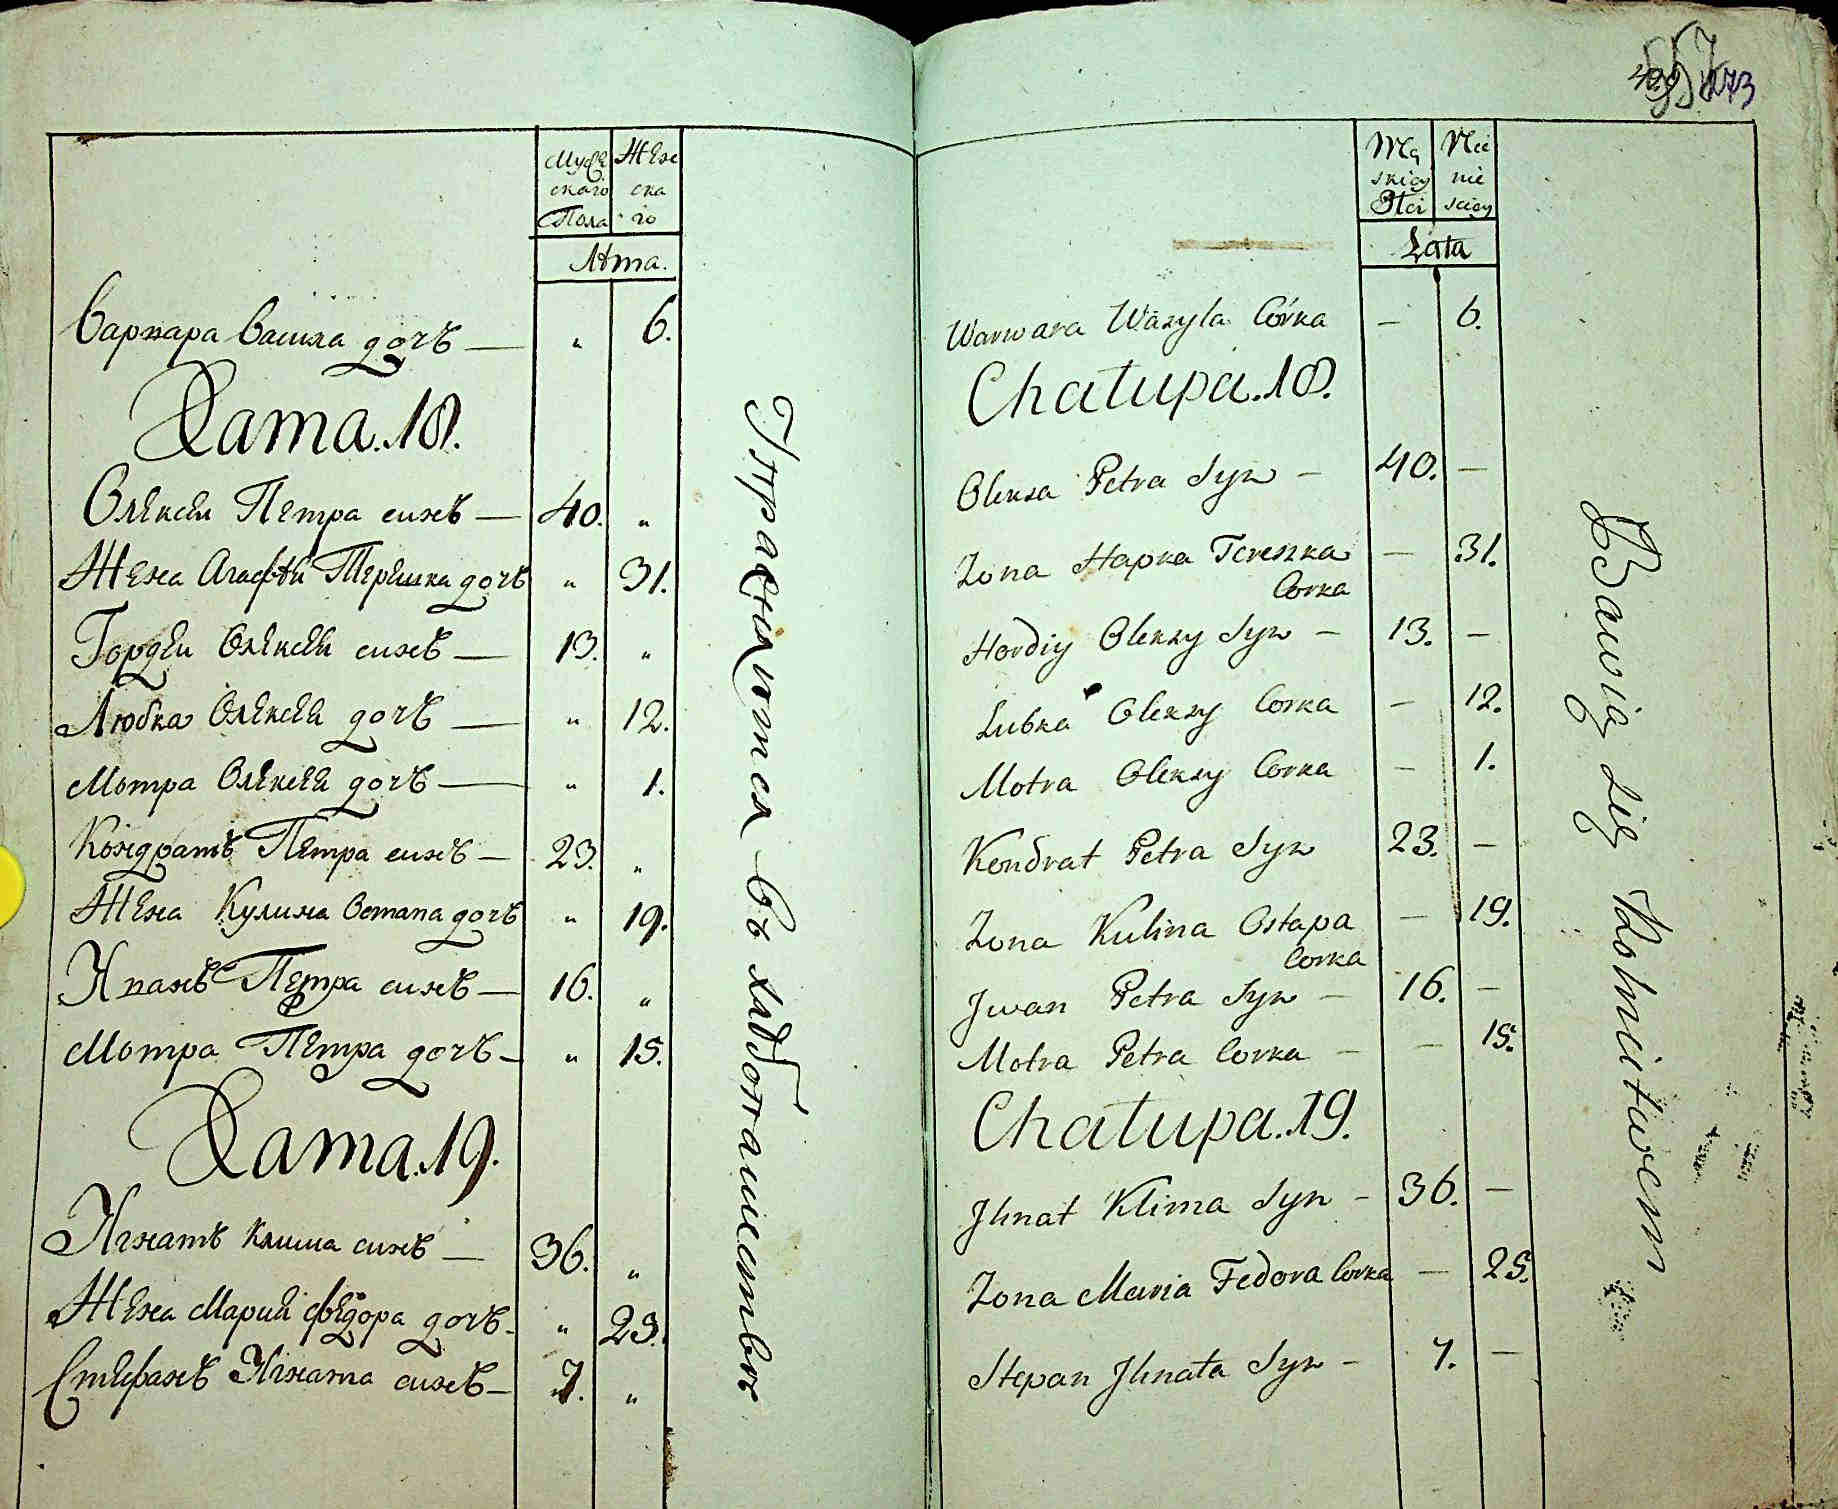 Мужескаго Пола
Женскаго
Лѣта.
Варвара Васила дочь — „ 6.
Хата. 18.
Олексѣй Петра синъ — 40. „
Жена Агафѣи Терешка дочь „ 31.
Гордѣи Олексѣя синъ — 13. „
Любка Олексѣя дочь — „ 12.
Мотра Олексѣя дочь — „ 1.
Кондратъ Петра синъ — 23. „
Жена Кулина Остапа дочь „ 19.
Иванъ Петра синъ — 16. „
Мотра Петра дочь — „ 15.
Хата. 19.
Игнатъ Клима синъ — 36. „
Жена Мария Федора дочь — „ 25.
Стефанъ Игната синъ — 7. „
Упражняются въ хлѣбопашествѣ
273
Mąskicy Płci
Lata
Warwara Wasyla Córka — 6.
Chałupa. 18.
Olexa Petra Syn — 40. —
Żona Hapka Tereszka Corka — 31.
Hordiy Olexy Syn — 13. —
Lubka Olexy Corka — 12.
Motra Olexy Corka — 1.
Kondrat Petra Syn 23. —
Żona Kulina Ostapa Corka — 19.
Jwan Petra Syn — 16. —
Motra Petra Corka — — 15.
Chałupa. 19.
Jhnat Klima Syn — 36. —
Żona Maria Fedora Corka — 25.
Stepan Jhnata Syn — 7. —
Bawią się Rolnictwem